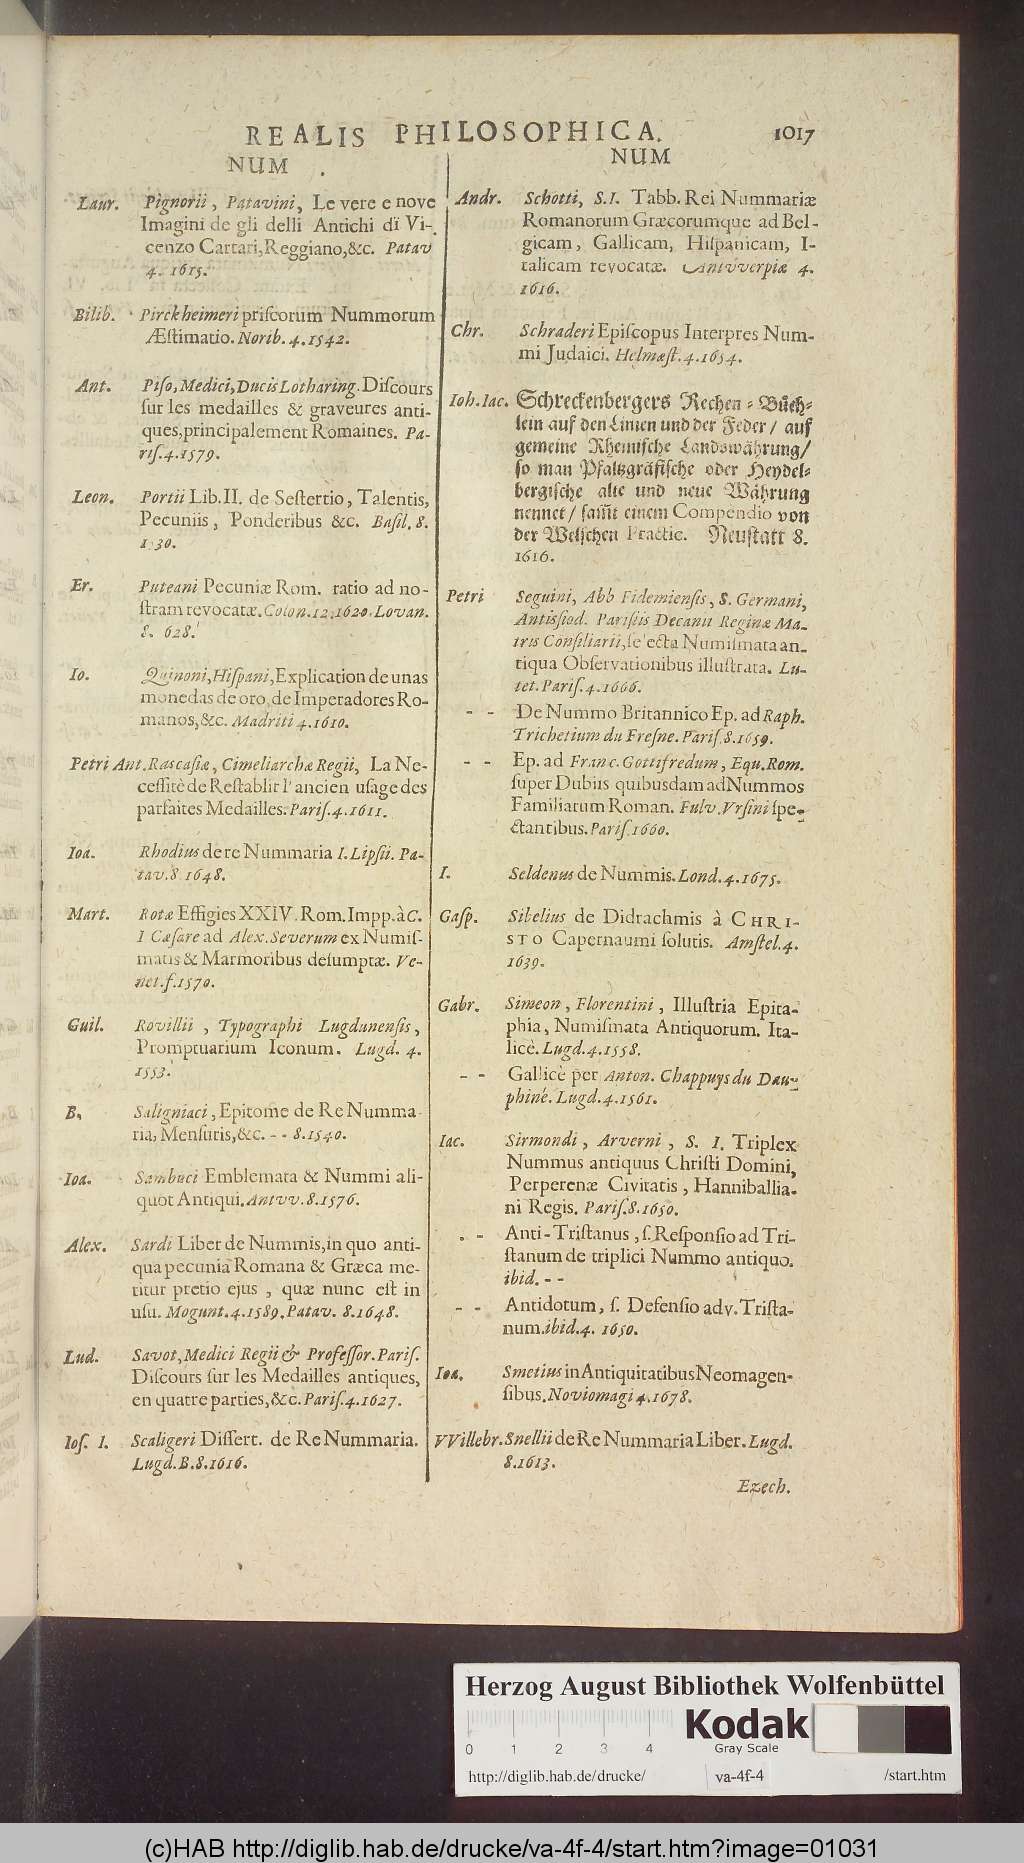 REALIS PHILOSOPHICA. 1017
NUM
Laur. Pignorii, Patavini, Le vere e nove
Imagini de gli delli Antichi di Vi-
cenzo Cartari, Reggiano, &c. Patav
4. 1615.
Bilib. Pirckheimeri priſcorum Nummorum
Æſtimatio. Norib. 4. 1542.
Ant. Piſo, Medici, Ducis Lotharing. Diſcours
ſur les medailles & graveures anti-
ques, principalement Romaines. Pa-
riſ. 4. 1579.
Leon. Portii Lib. II. de Seſtertio, Talentis,
Pecuniis, Ponderibus &c. Baſil. 8.
1530.
Er. Puteani Pecuniæ Rom. ratio ad no-
ſtram revocatæ. Colon. 12. 1620. Lovan.
8. 628.
Io. Quinoni, Hiſpani, Explication de unas
monedas de oro, de Imperadores Ro-
manos, &c. Madriti 4. 1610.
Petri Ant. Rascaſiæ, Cimeliarchæ Regii, La Ne-
ceſſitè de Reſtablir l'ancien uſage des
parfaites Medailles. Pariſ. 4. 1611.
Ioa. Rhodius de re Nummaria I. Lipſii. Pa-
tav. 8 1648.
Mart. Rotæ Effigies XXIV. Rom. Impp. à C.
I Cæſare ad Alex. Severum ex Numiſ-
matis & Marmoribus deſumptæ. Ve-
net. f. 1570.
Guil. Rovillii, Typographi Lugdunenſis,
Promptuarium Iconum. Lugd. 4.
1553.
B. Saligniaci, Epitome de Re Numma-
ria, Menſuris, &c. - - 8. 1540.
Ioa. Sambuci Emblemata & Nummi ali-
quot Antiqui. Antvv. 8. 1576.
Alex. Sardi Liber de Nummis, in quo anti-
qua pecunia Romana & Græca me-
titur pretio ejus, quæ nunc eſt in
uſu. Mogunt. 4. 1589. Patav. 8. 1648.
Lud. Savot, Medici Regii & Profeſſor. Pariſ.
Diſcours ſur les Medailles antiques,
en quatre parties, &c. Pariſ. 4. 1627.
Ioſ. I. Scaligeri Diſſert. de Re Nummaria.
Lugd. B. 8. 1616.
NUM
Andr. Schotti, S. I. Tabb. Rei Nummariæ
Romanorum Græcorumque ad Bel-
gicam, Gallicam, Hiſpanicam, I-
talicam revocatæ. Antvverpiæ 4.
1616.
Chr. Schraderi Epiſcopus Interpres Num-
mi Judaici. Helmæſt. 4. 1654.
Ioh. Iac. Schreckenbergers Rechen-Büch-
lein auf den Linien und der Feder / auf
gemeine Rheiniſche Landswährung /
ſo man Pfaltzgräfiſche oder Heydel-
bergiſche alte und neue Währung
nennet / ſam̃t einem Compendio von
der Welſchen Practic. Neuſtatt 8.
1616.
Petri Seguini, Abb Fidemienſis, S. Germani,
Antiſſiod. Pariſiis Decani Reginæ Ma-
tris Conſiliarii, ſelecta Numiſmata an-
tiqua Obſervationibus illuſtrata. Lu-
tet. Pariſ. 4. 1666.
- - De Nummo Britannico Ep. ad Raph.
Trichetium du Freſne. Pariſ. 8. 1659.
- - Ep. ad Franc. Gottifredum, Equ. Rom.
ſuper Dubiis quibusdam ad Nummos
Familiarum Roman. Fulv. Vrſini ſpe-
ctantibus. Pariſ. 1660.
I. Seldenus de Nummis. Lond. 4. 1675.
Gaſp. Sibelius de Didrachmis à CHRI-
STO Capernaumi ſolutis. Amſtel. 4.
1639.
Gabr. Simeon, Florentini, Illuſtria Epita-
phia, Numiſmata Antiquorum. Ita-
licè. Lugd. 4. 1558.
- - Gallicè per Anton. Chappuys du Dau-
phiné. Lugd. 4. 1561.
Iac. Sirmondi, Arverni, S. I. Triplex
Nummus antiquus Chriſti Domini,
Perperenæ Civitatis, Hanniballia-
ni Regis. Pariſ. 8. 1650.
- - Anti-Triſtanus, ſ. Reſponſio ad Tri-
ſtanum de triplici Nummo antiquo.
ibid. - -
- - Antidotum, ſ. Defenſio adv. Triſta-
num. ibid. 4. 1650.
Ioa. Smetius in Antiquitatibus Neomagen-
ſibus. Noviomagi 4. 1678.
VVillebr. Snellii de Re Nummaria Liber. Lugd.
8. 1613.
Ezech.
Herzog August Bibliothek Wolfenbüttel
0 1 2 3 4
Kodak
Gray Scale
http://diglib.hab.de/drucke/ va-4f-4 /start.htm
(c)HAB http://diglib.hab.de/drucke/va-4f-4/start.htm?image=01031